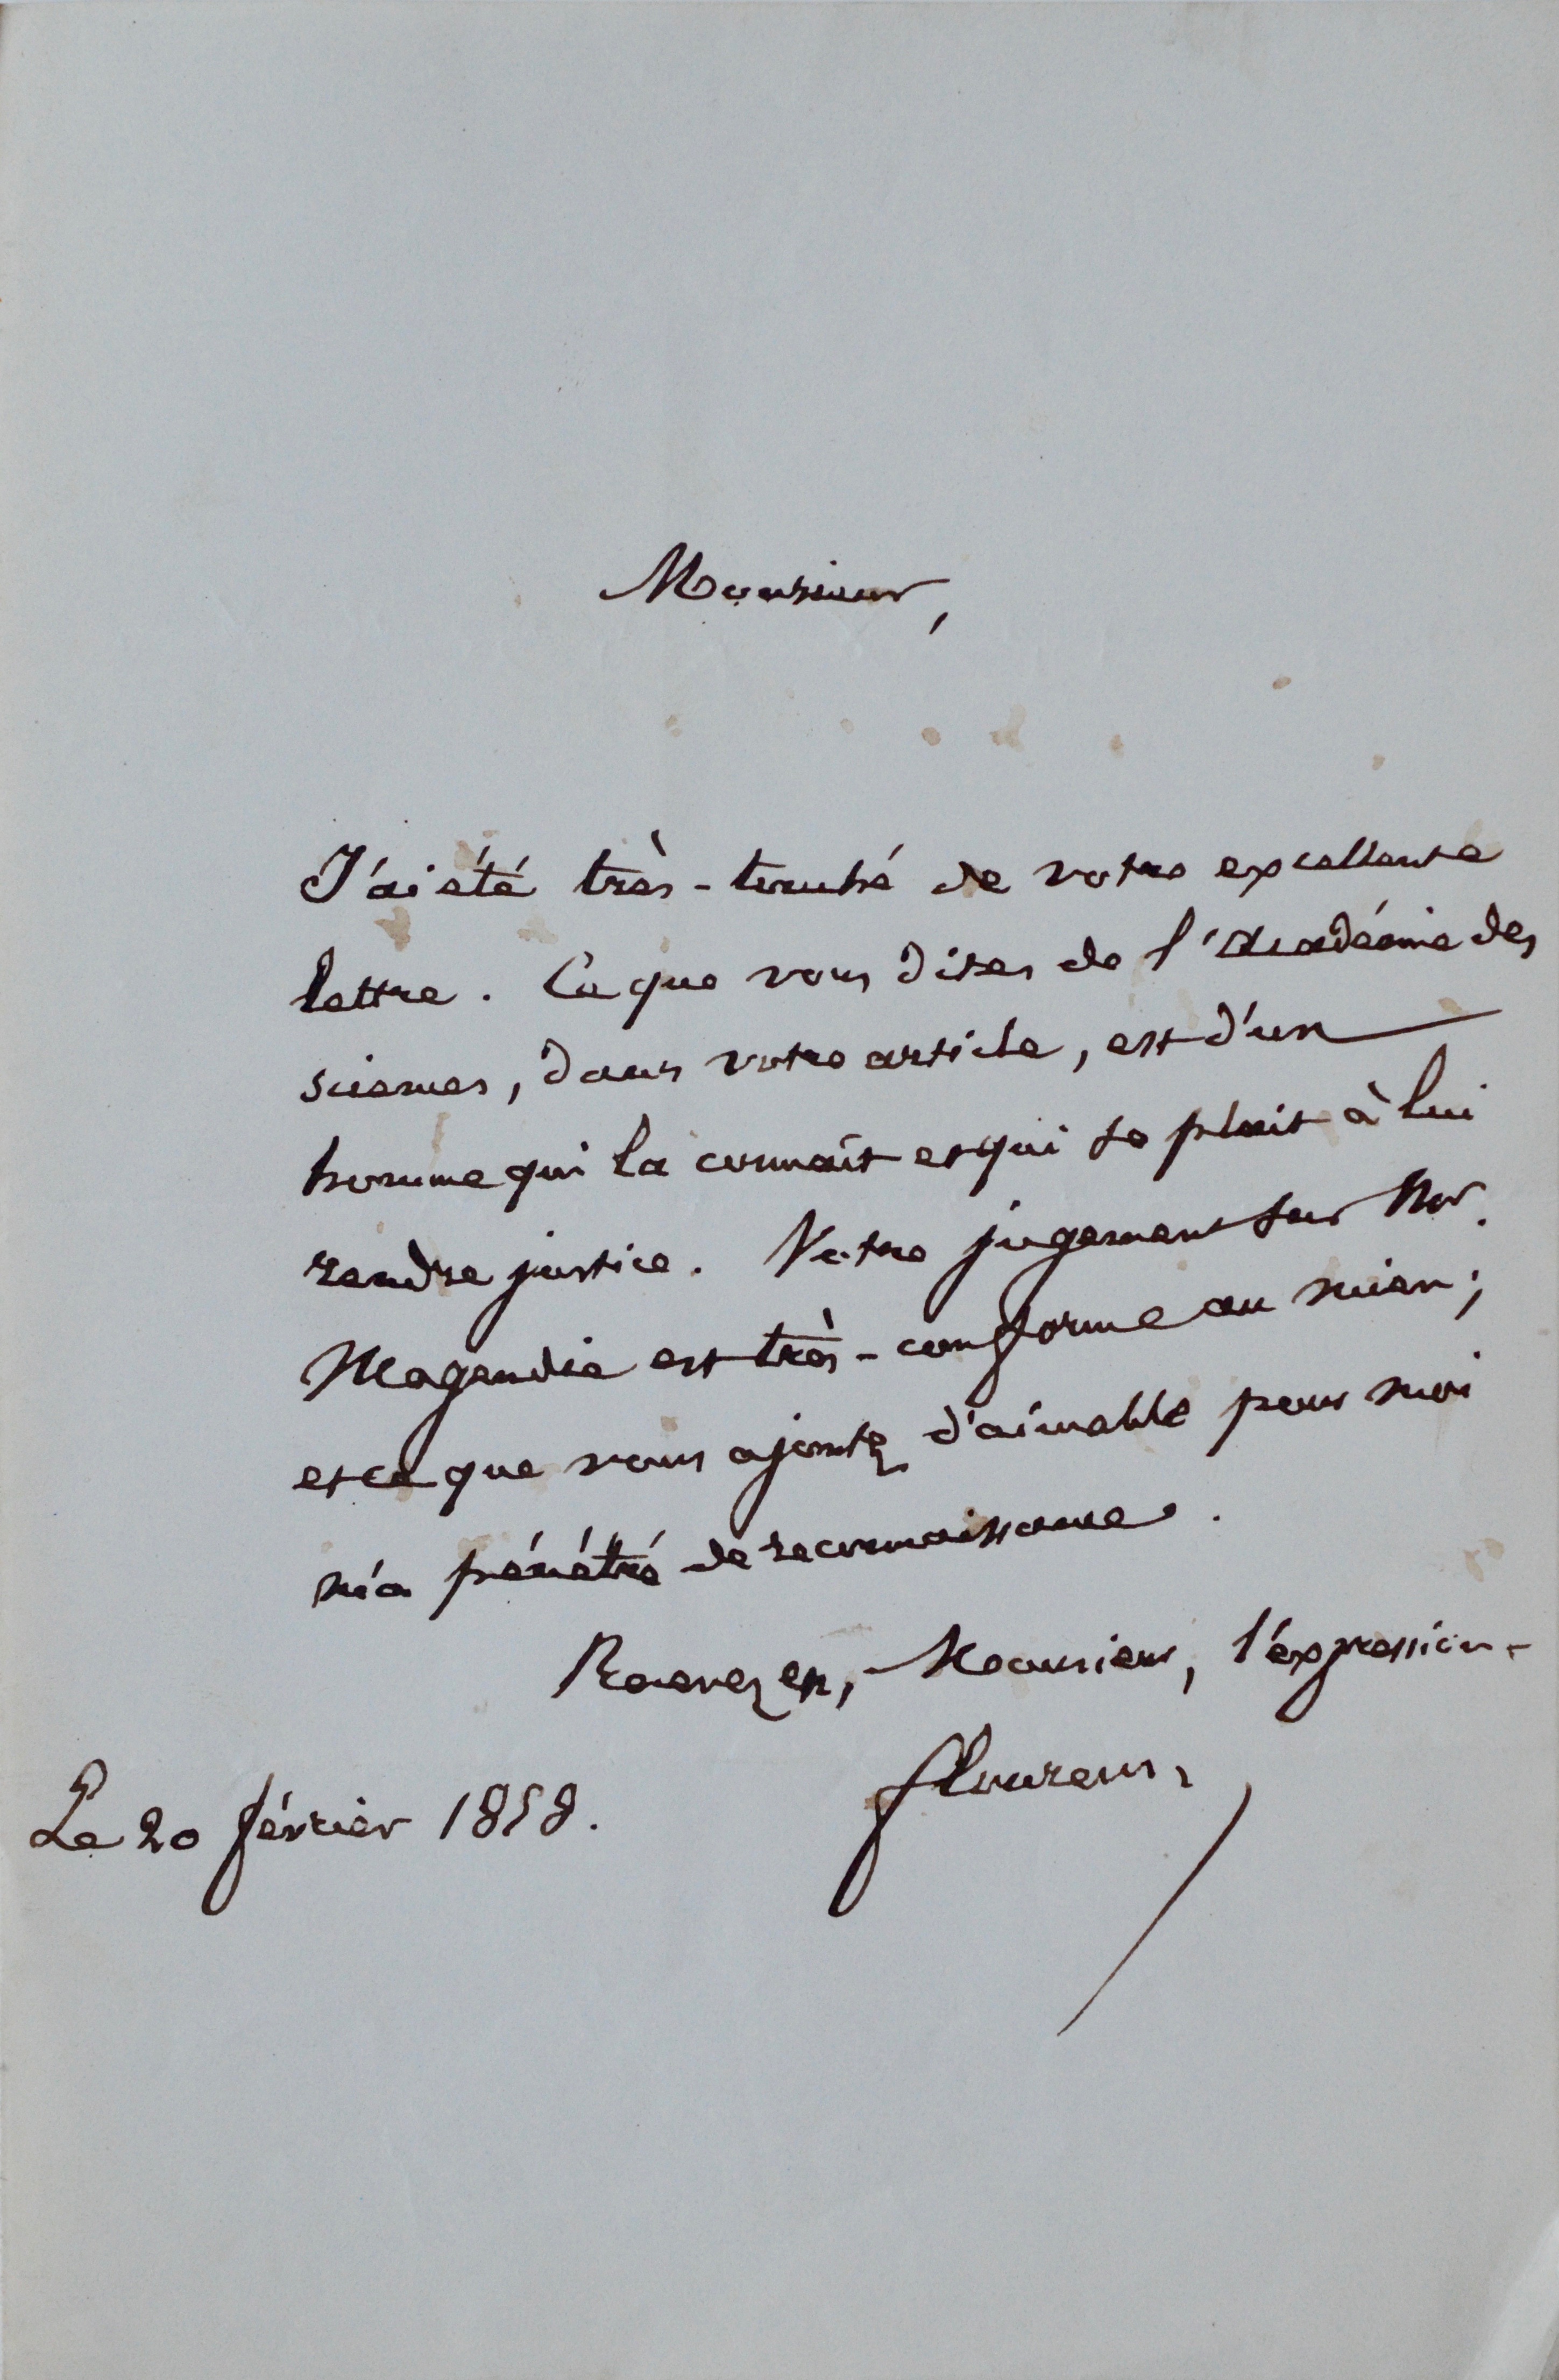 Monsieur,
J'ai été très-touché de votre excellente
lettre. Ce que vous dites de l'académie des
sciences, dans votre article, est d'un
homme qui la connaît et qui se plait à lui
rendre justice. Votre jugement sur Mr.
Magendie est très-conforme au mien;
et ce que vous ajoutez d'aimable pour moi
m'a pénétré de reconnaissance.
Recevez en, Monsieur, l'expression.
flourens,
Le 20 février 1858.